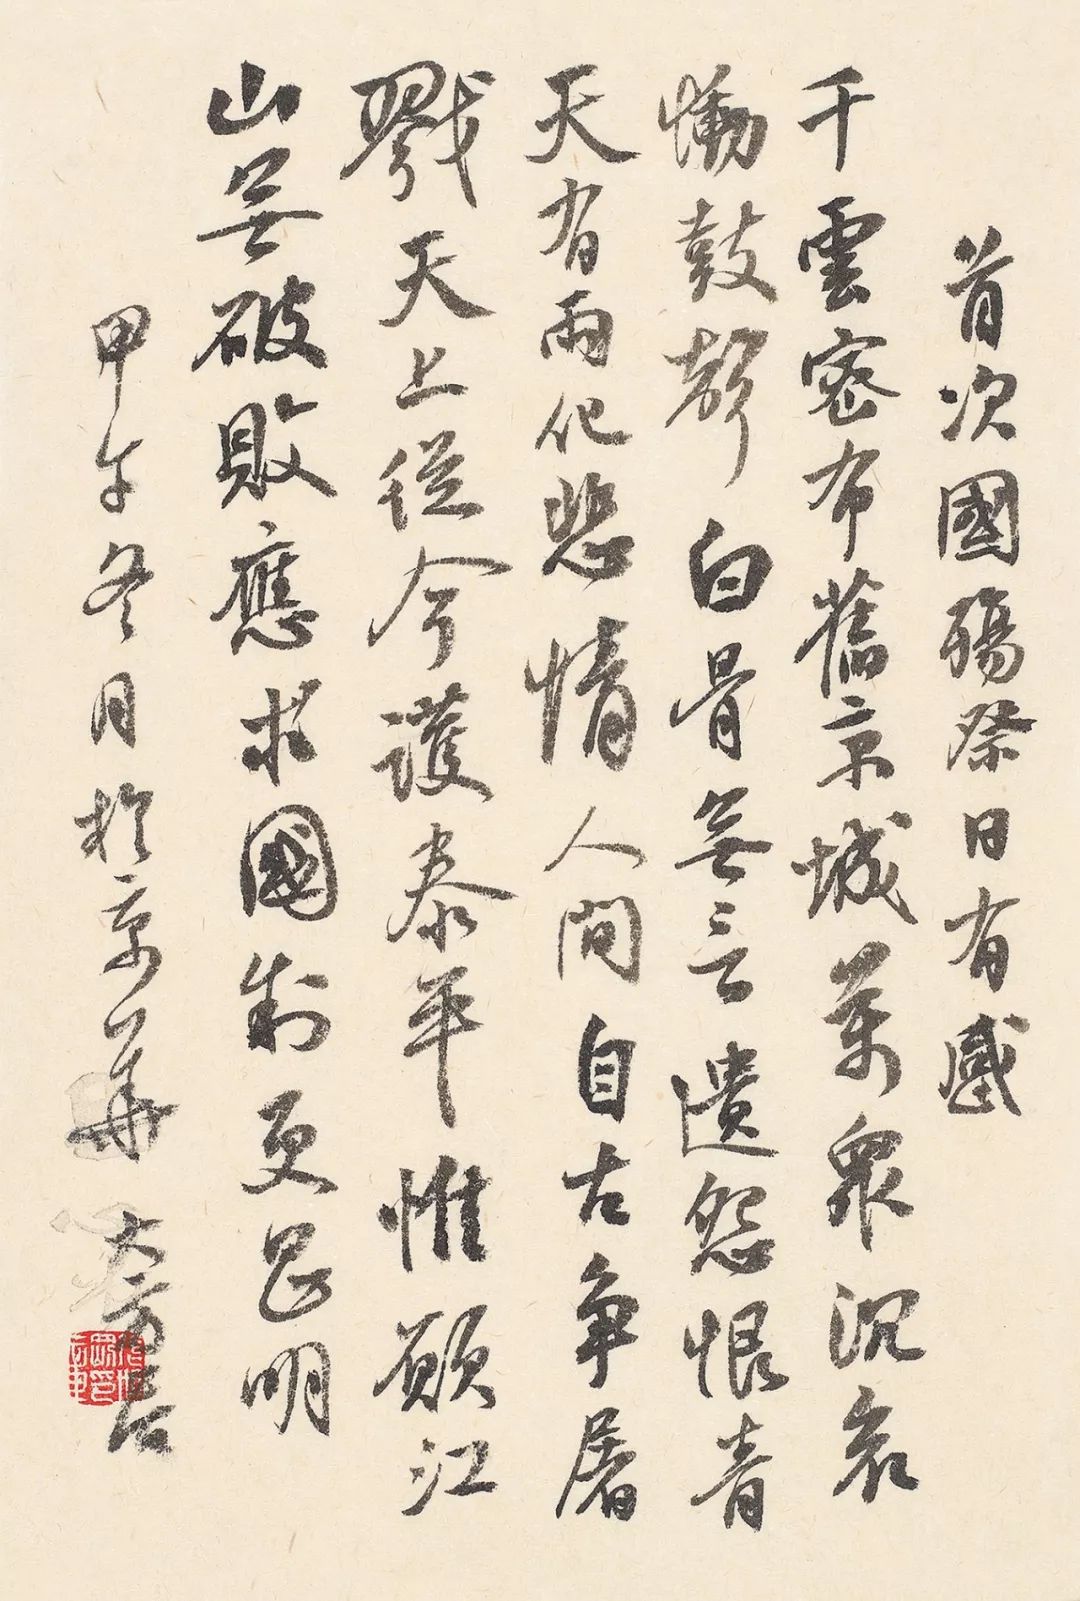 首次國殤祭日有感
千雲密布舊京城萬衆沉哀
慟鼓聲白骨無言遺怨恨青
天有雨化悲情人間自古爭屠
戮天上從今護泰平惟願江
山無破敗應求國制更昌明
甲午冬月於京華